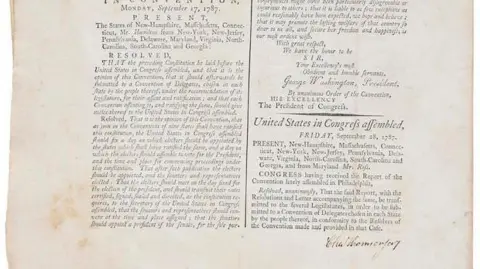 IN CONVENTION,
MONDAY, September 17, 1787.
PRESENT,
The States of New-Hampshire, Massachusetts, Connecticut,
Mr. Hamilton from New-York, New-Jersey,
Pennsylvania, Delaware, Maryland, Virginia, North-
Carolina, South-Carolina and Georgia:
RESOLVED,
THAT the preceding Constitution be laid before the
United States in Congress assembled, and that it is the
opinion of this Convention, that it should afterwards be
submitted to a Convention of Delegates, chosen in each
state by the people thereof, under the recommendation of its
legislature, for their assent and ratification; and that each
Convention assenting to, and ratifying the same, should give
notice thereof to the United States in Congress assembled.
Resolved, That it is the opinion of this Convention, that
as soon as the Conventions of nine States shall have ratified
this constitution, the United States in Congress assembled
should fix a day on which electors should be appointed by
the states which shall have ratified the same, and a day on
which the electors should assemble to vote for the President,
and the time and place for commencing proceedings under
this constitution. That after such publication the electors
should be appointed, and the senators and representatives
elected: That the electors should meet on the day fixed for
the election of the president, and should transmit their votes
certified, signed, sealed and directed, as the constitution requires,
to the secretary of the United States in Congress
assembled, that the senators and representatives should convene
at the time and place assigned; that the senators
should appoint a president of the senate, for the sole pur-
ous to others; that it is liable to as few exceptions as
could reasonably have been expected, we hope and believe; that
it may promote the lasting welfare of that country so
dear to us all, and secure her freedom and happiness, is
our most ardent wish.
With great respect,
We have the honor to be
SIR,
Your Excellency's most
Obedient and humble Servants,
George Washington, President.
By unanimous Order of the Convention.
HIS EXCELLENCY
The President of Congress.
United States in Congress assembled,
FRIDAY, September 28, 1787.
PRESENT, New-Hampshire, Massachusetts, Connecticut,
New-York, New-Jersey, Pennsylvania, Delaware,
Virginia, North-Carolina, South-Carolina and
Georgia, and from Maryland Mr. Ross.
CONGRESS having received the Report of the
Convention lately assembled in Philadelphia,
Resolved, unanimously, That the said Report, with the
Resolutions and Letter accompanying the same, be transmitted
to the several Legislatures, in order to be submitted
to a Convention of Delegates chosen in each State
by the people thereof, in conformity to the Resolves of
the Convention made and provided in that Case.
Chas Thomson secy